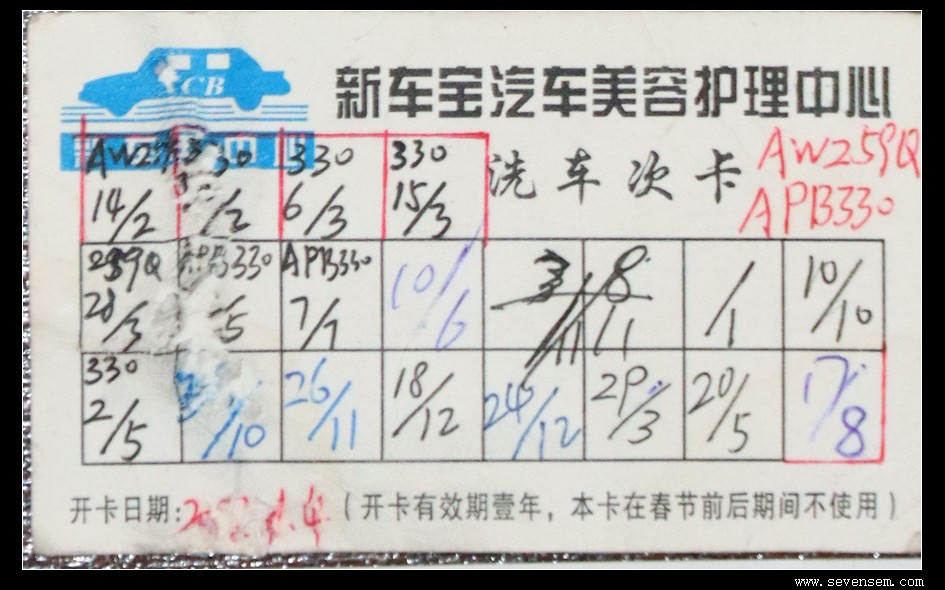 CB
新车宝汽车美容护理中心
洗车次卡 AW259Q
APB330
330 330
14/2 /2 6/3 15/3
259Q 330 APB330
28/3 5 7/7 10/6 8/11 1/1 10/10
330
2/5 /10 26/11 18/12 24/12 29/3 20/5 17/8
开卡日期: (开卡有效期壹年，本卡在春节前后期间不使用)
www.sevensem.com